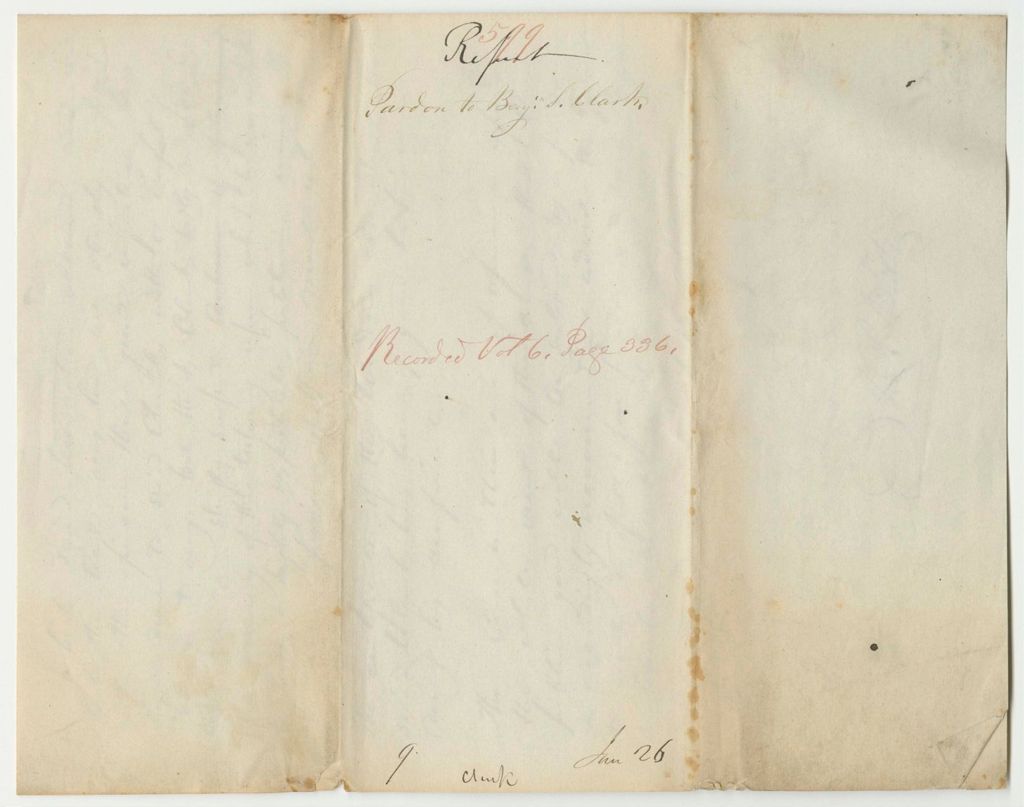 599
Report
Pardon to Benj: S. Clark,
Recorded Vol 6. Page 336.
9. Jan 26
Clark